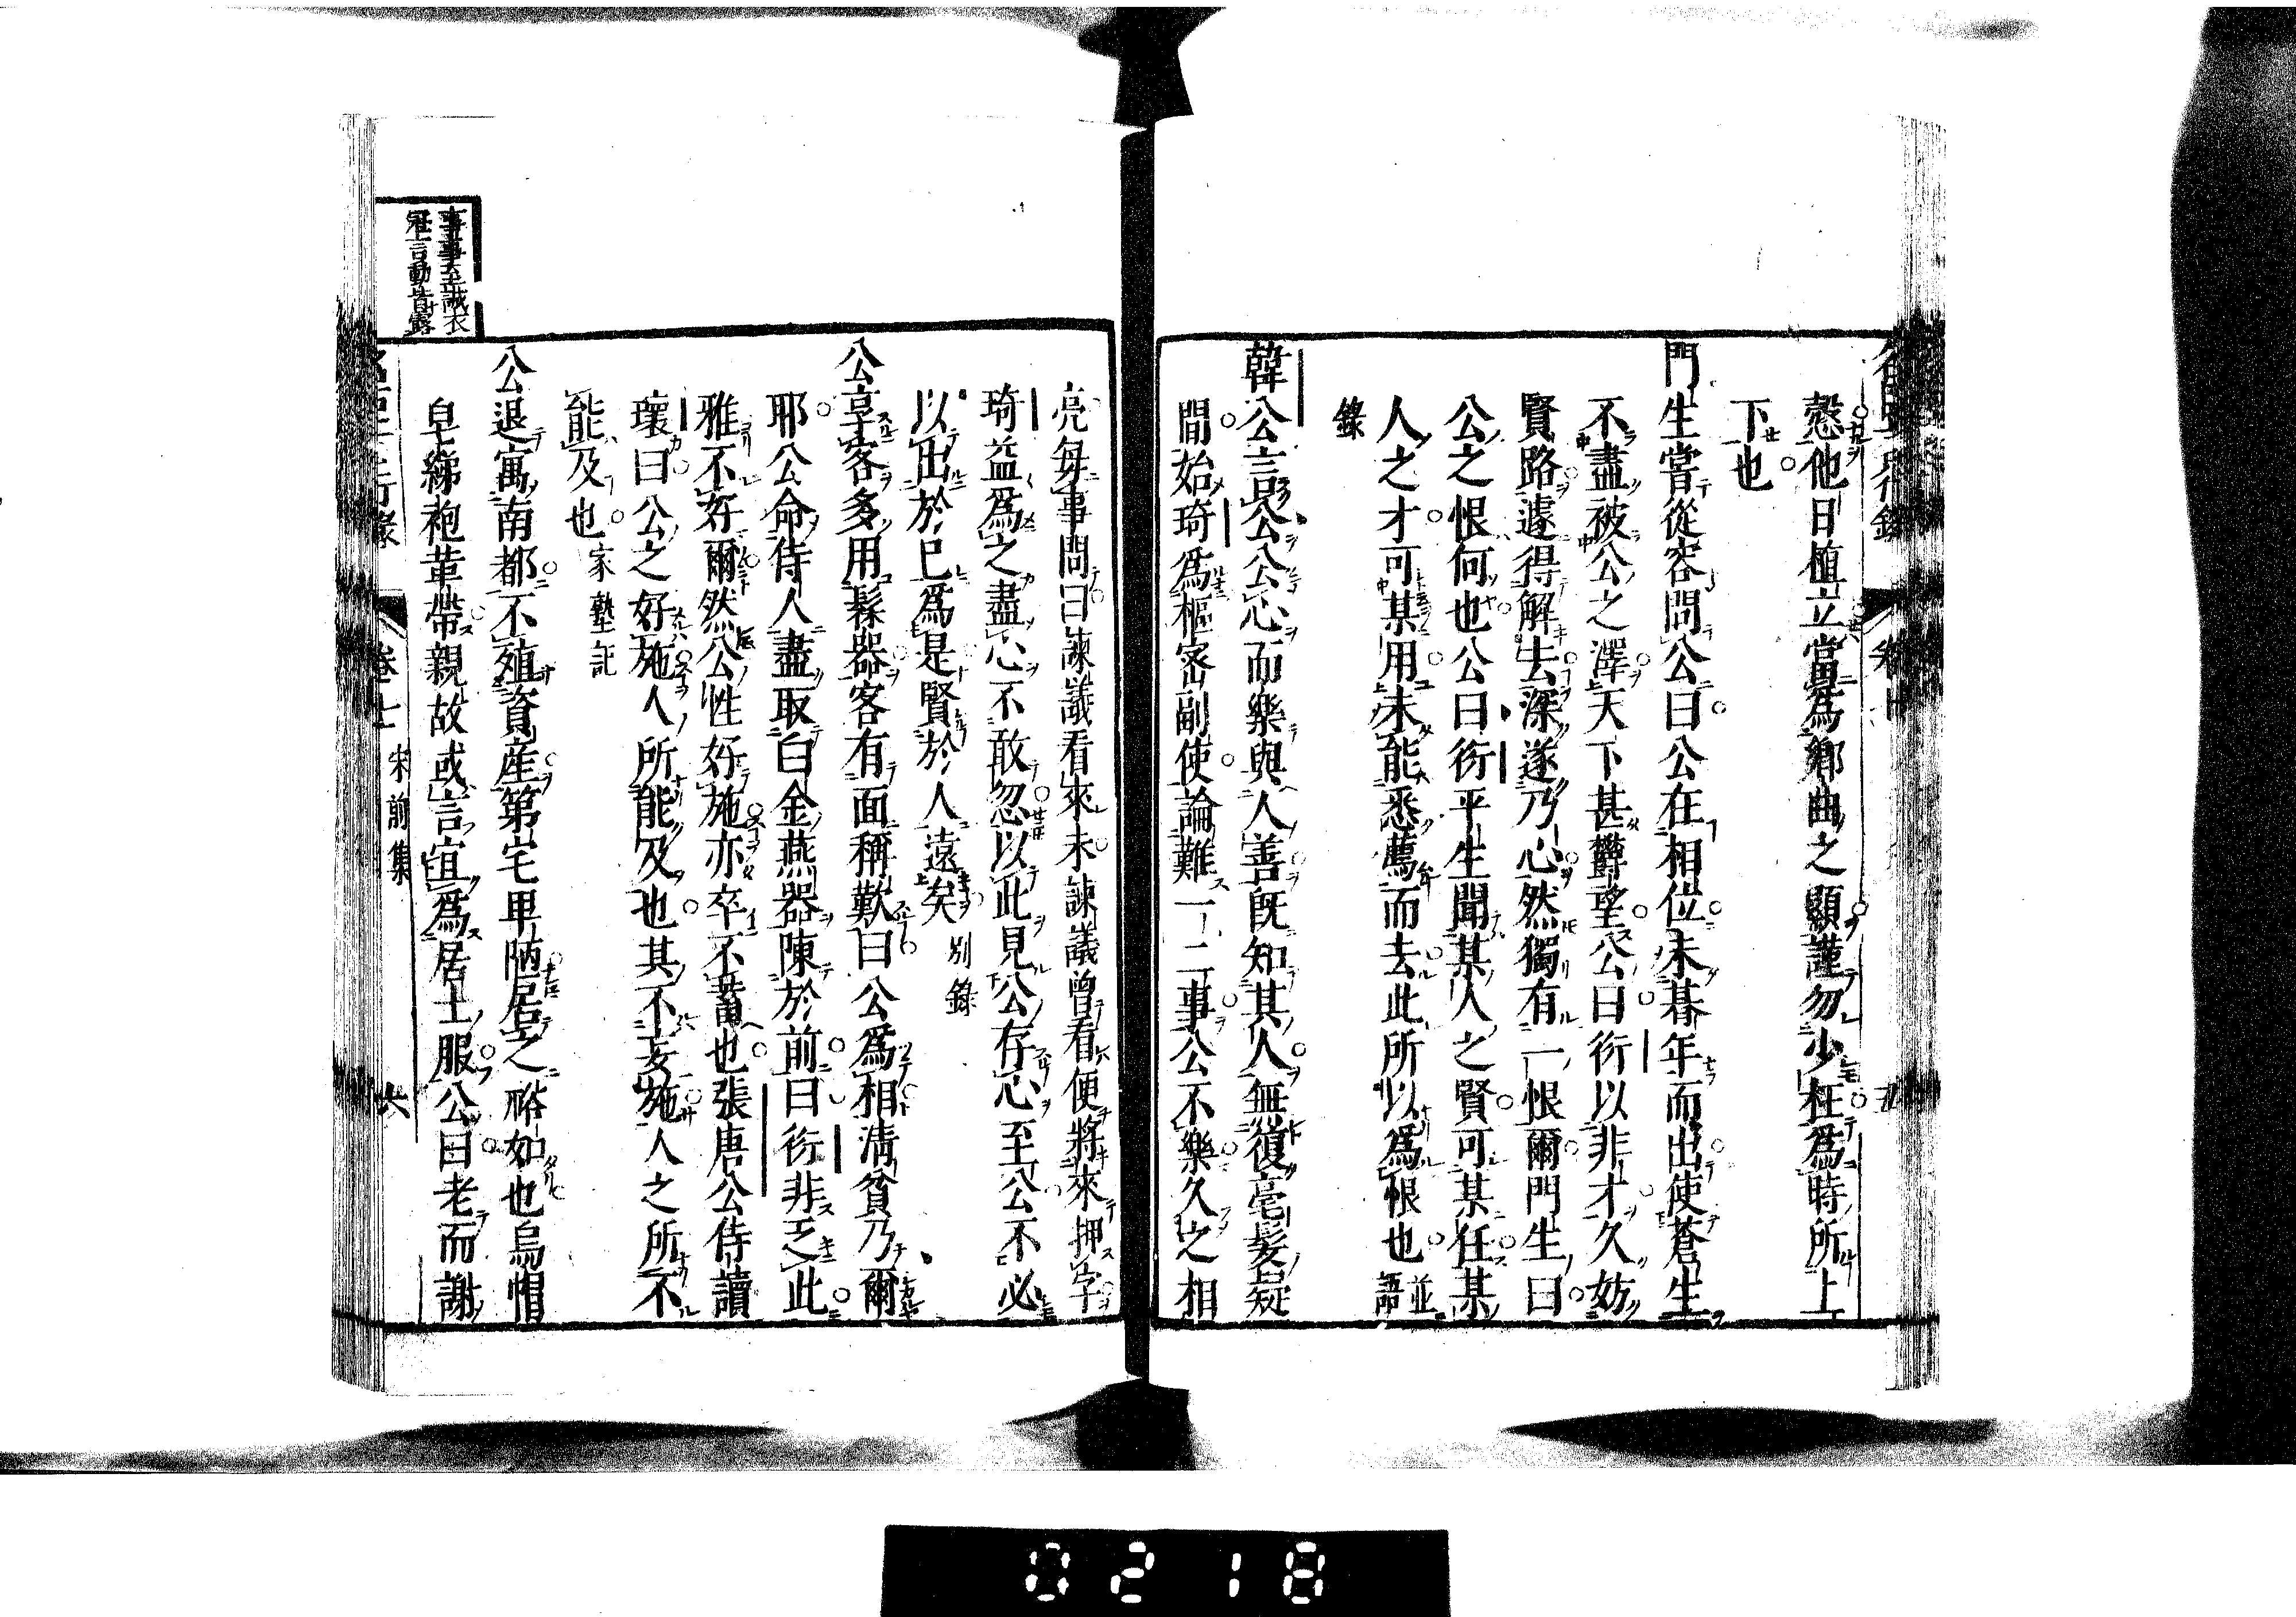 愨他日植立當爲鄕曲之顯謹勿少枉爲時所上
下也
門生嘗從容問公曰公在相位未朞年而出使蒼生
不盡被公之澤天下甚欝望公曰衍以非才久妨
賢路遽得解去深遂乃心然獨有一恨爾門生曰
公之恨何也公曰衍平生聞某人之賢可某任某
人之才可某用未能悉薦而去此所以爲恨也並語
錄
韓公言公公心而樂與人善旣知其人無復毫髮疑
間始琦爲樞密副使論難一二事公不樂久之相
亮每事問曰諫議看來未諫議曾看便將來押字
琦益爲之盡心不敢忽以此見公存心至公不必
以出於已爲是賢於人遠矣別錄
公享客多用髹器客有面稱歎曰公爲相淸貧乃爾
耶公命侍人盡取白金燕器陳於前曰衍非乏此
雅不好爾然公性好施亦卒不蓄也張唐公侍讀
瓌曰公之好施人所能及也其不妄施人之所不
能及也家塾記
公退寓南都不殖資產第宅卑陋居之裕如也烏帽
皁綈袍革帶親故或言宜爲居士服公曰老而謝
事事至誠衣
冠言動皆露
卷七 宋前集
0218